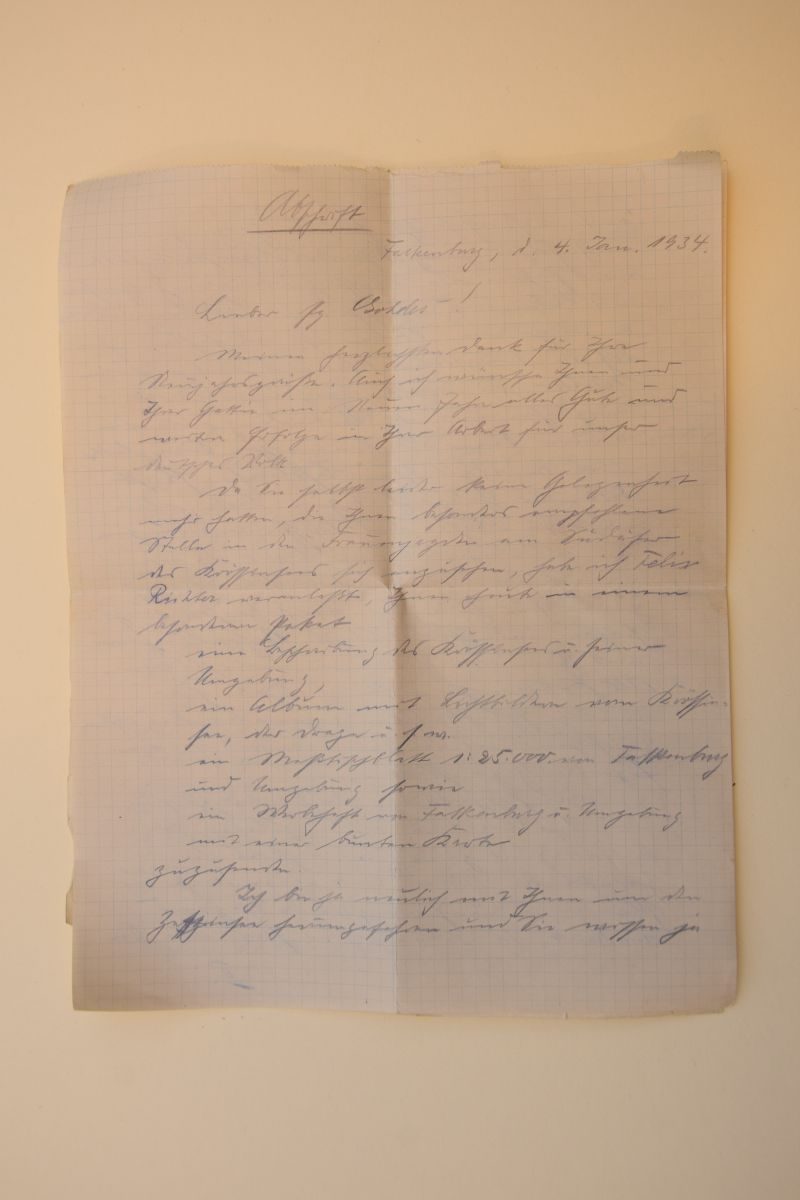 Abschrift
Falkenburg, d. 4. Jan. 1934.
Lieber Pg Gohdes!
Meinen herzlichsten Dank für Ihre
Neujahrsgrüße. Auch ich wünsche Ihnen und
Ihrer Gattin im Neuen Jahr alles Gute und
weitere Erfolge in Ihrer Arbeit für unser
deutsches Volk
Da Sie selbst leider keine Gelegenheit
mehr hatten, die Ihnen besonders empfohlene
Stelle in den am Südufer
des Krössinsees sich anzusehen, habe ich Felix
Richter veranlaßt, Ihnen heute in einem
besonderen Paket
eine Beschreibung des Krössinsees u. seiner
Umgebung,
ein Album mit Lichtbildern vom Krössin-
see, der Drage u. s. w.
ein Meßtischblatt 1:25.000. von Falkenburg
und Umgebung sowie
ein Werbeheft von Falkenburg u. Umgebung
mit einer bunten Karte
zuzusenden.
Ich bin ja neulich mit Ihnen um den
herumgefahren und Sie wissen ja